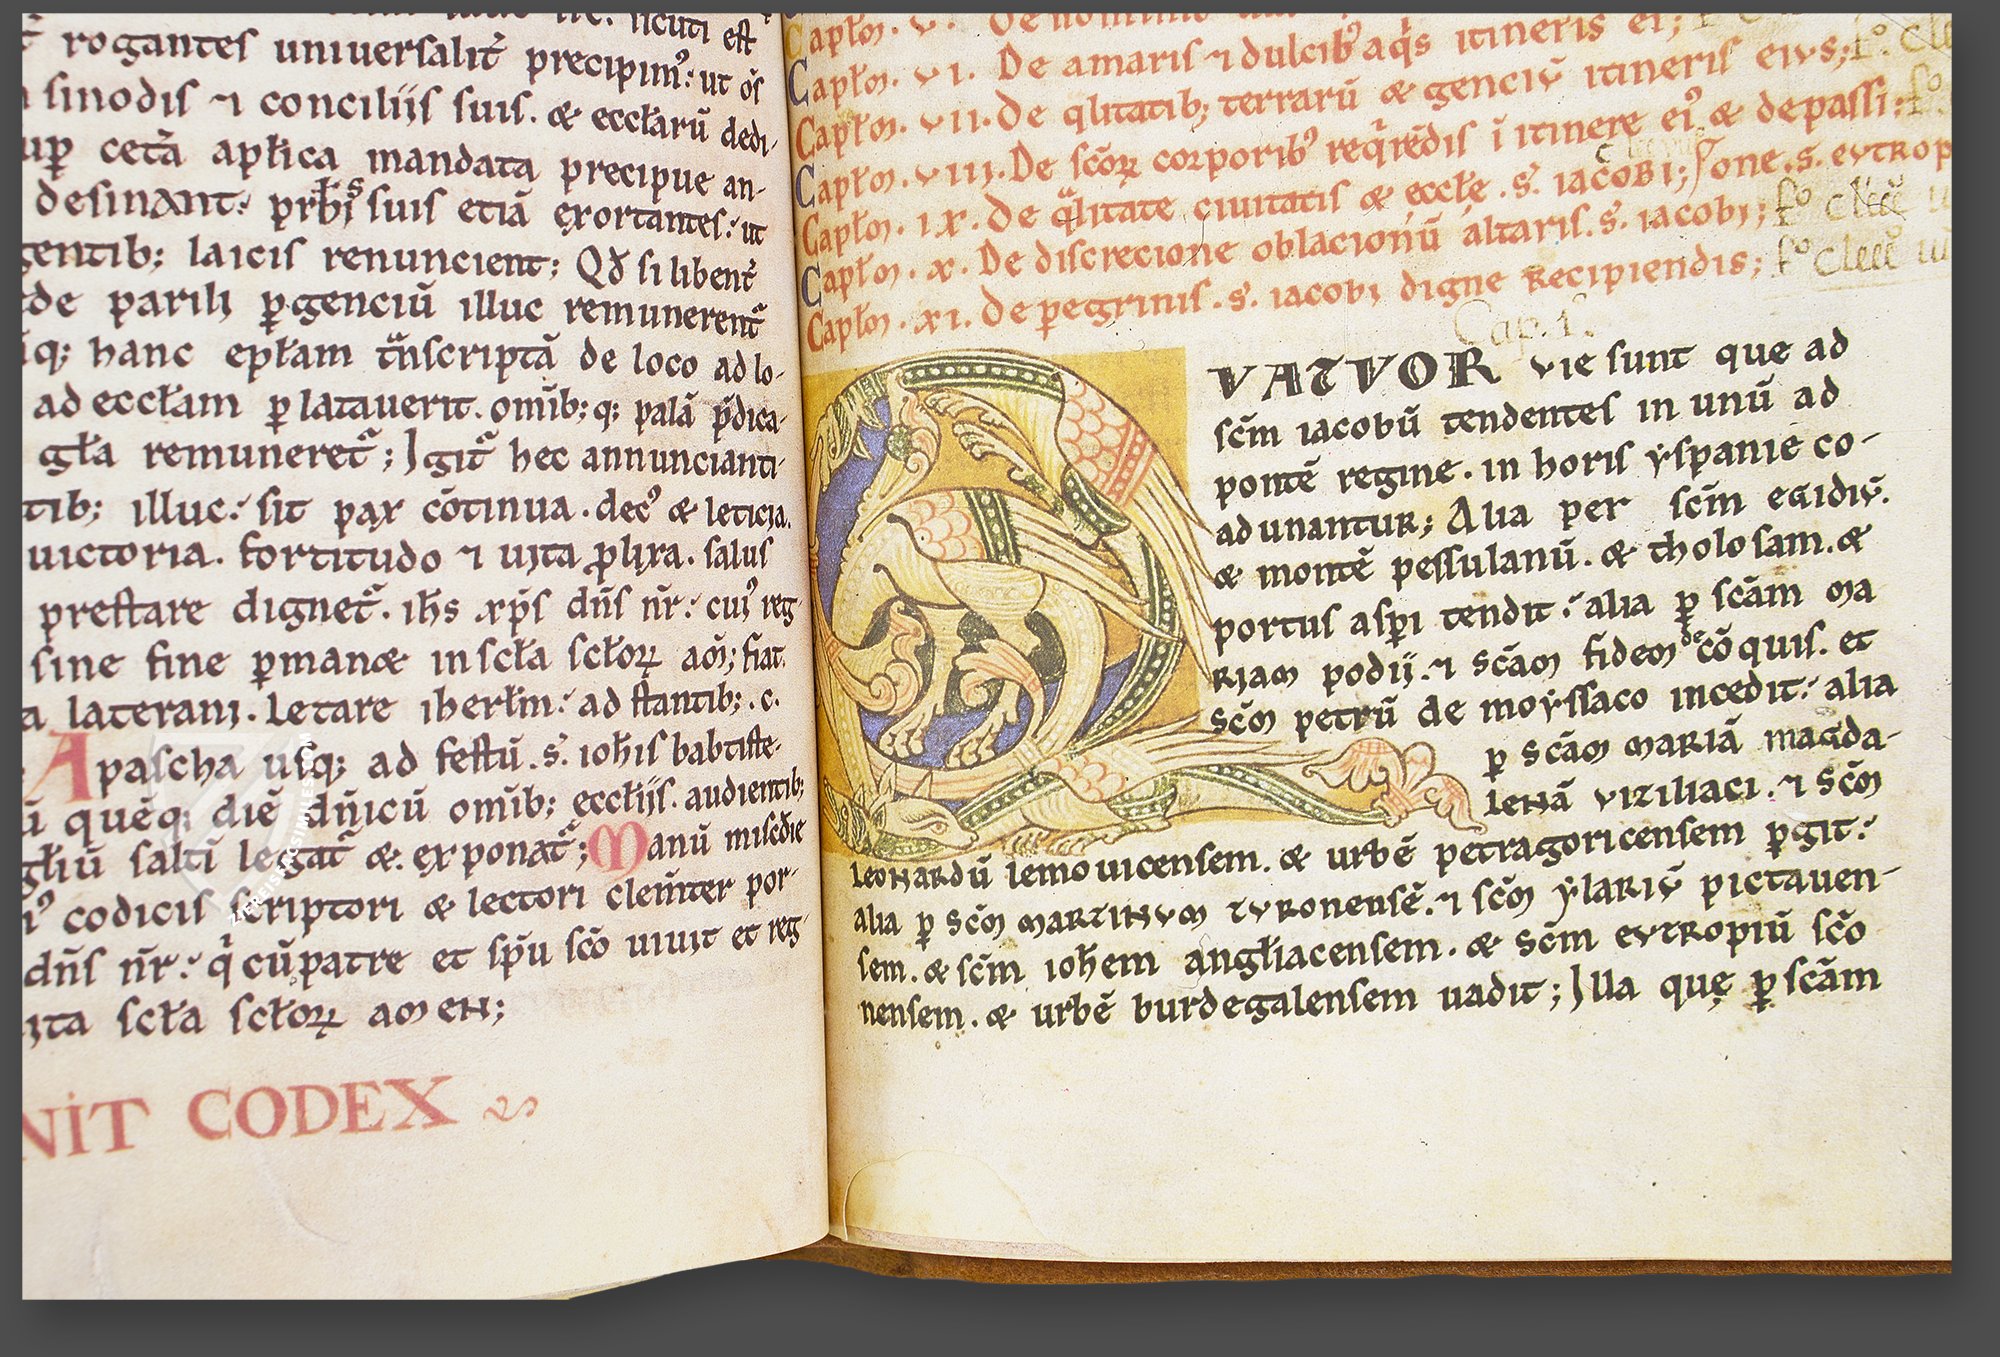 rogantes uniuersalit̃ precipimꝰ: ut oñs
sinodis ⁊ conciliis suis. & eccłarū dedi-
cetã apłica mandata precipue an-
desinant: prb̃is suis etiã exortantes: ut
gentib; laicis renuncient; Qđ si libent̃
de parili ꝑgenciū illuc remunerent᷑
q; hanc epłam tñscriptã de loco ad lo-
ad eccłam ꝑlatauerit. omĩb; q; palã p̃dica-
gła remuneret᷑; Igit᷑ hec annuncianti-
tib; illuc: sit pax cõtinua. decꝰ & leticia.
uictoria. fortitudo ⁊ uita ꝓlixa. salus
prestare dignet᷑. ih̃s xp̃s dñs nr̃: cuiꝰ reg-
sine fine ꝑman& in scła scłoꝝ am̃; fiat.
laterani. Letare iherłm: ad stantib; .c.
A pascha usq; ad festū .s. ioh̃is babtiste-
quēq; diē dñicū omĩb; eccłiis. audientib;
salti legat᷑ &. exponat᷑; Manū misc̃die
codicis scriptori & lectori clem̃ter por-
dñs nr̃: q̃ cū patre et sp̃u sc̃o uiuit et reg-
scła scłoꝝ amen;
NIT CODEX
Capłm. v. De nomini
Capłm. vi. De amaris ⁊ dulcib' aq̃s itineris ei;
Capłm. vii. De q̃litatib; terrarū & genciū itineris eius; fº.
Capłm. viii. De sc̃oꝝ corporib' req̃rēdis ĩ itinere eiꝰ & de passione .s. eutrop
Capłm. ix. De q̃litate ciuitatis & eccłe .s̃. iacobi; fº
Capłm. x. De discrecione oblacionū altaris .s. iacobi; fº
Capłm. xi. De peregrinis .s. iacobi digne recipiendis; fº
Cap. 1.
QVATVOR vie sunt que ad
sc̃m iacobū tendentes in unū ad
pontē regine. in horis yspanie co-
adunantur; Alia per sc̃m egidiū.
& montē pessulanū. & tholosam. &
portus asp̃i tendit: alia ꝑ sc̃am ma
riam podii. ⁊ sc̃am fidem de cõquis. et
sc̃m petrū de moyssaco incedit: alia
ꝑ sc̃am mariã magda-
lenã viziliaci. ⁊ sc̃m
leonardū lemouicensem. & urbē petragoricensem ꝑgit:
alia ꝑ sc̃m martinum turonensē. ⁊ sc̃m ylariū pictauen-
sem. & sc̃m ioh̃em angłiacensem. & sc̃m eutropiū sc̃o
nensem. & urbē burdegalensem uadit; Illa quę ꝑ sc̃am